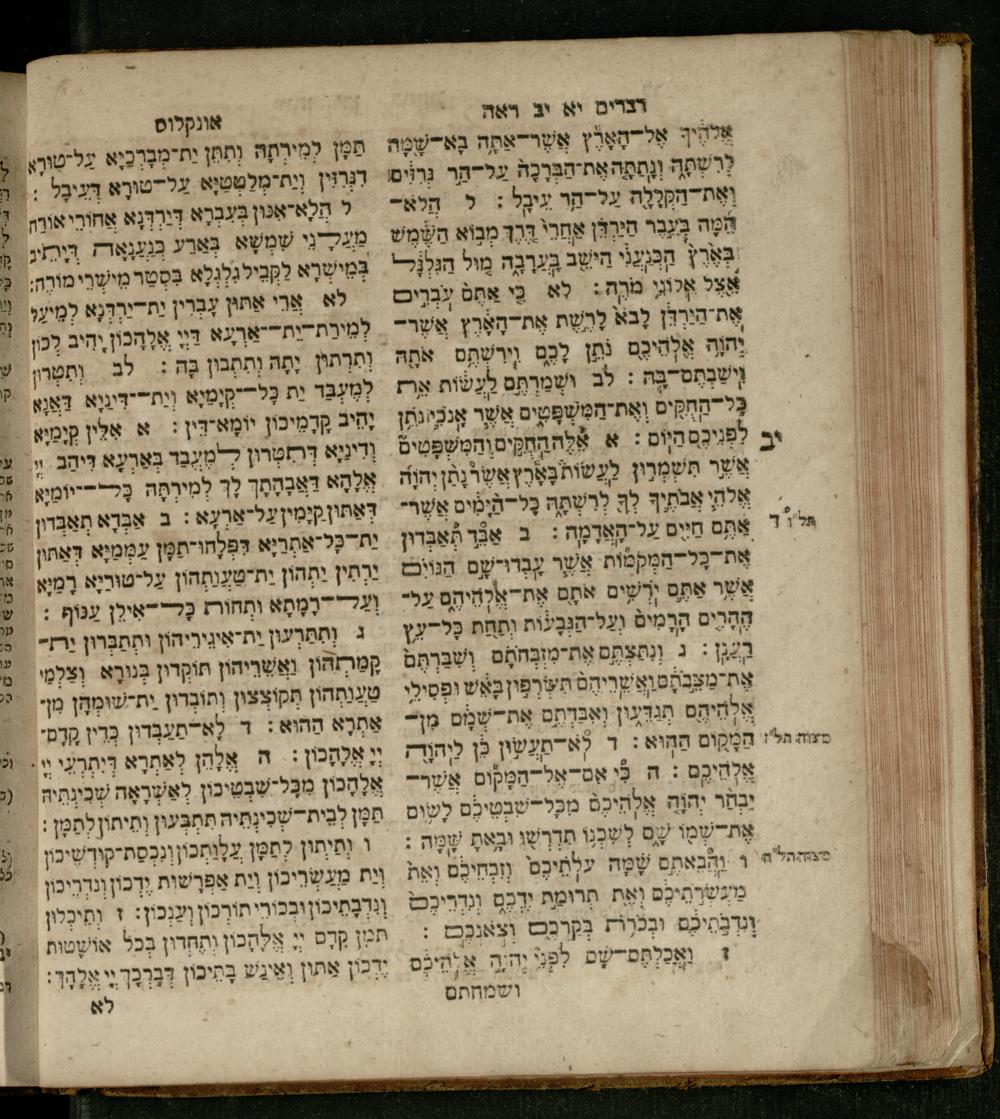 דברים יא יב ראה
אֱלֹהֶיךָ אֶל־הָאָרֶץ אֲשֶׁר־אַתָּה בָא־שָׁמָּה
לְרִשְׁתָּהּ וְנָתַתָּה אֶת־הַבְּרָכָה עַל־הַר גְּרִזִּים
וְאֶת־הַקְּלָלָה עַל־הַר עֵיבָל : ל הֲלֹא־
הֵמָּה בְּעֵבֶר הַיַּרְדֵּן אַחֲרֵי דֶּרֶךְ מְבוֹא הַשֶּׁמֶשׁ
בְּאֶרֶץ הַכְּנַעֲנִי הַיֹּשֵׁב בָּעֲרָבָה מוּל הַגִּלְגָּל
אֵצֶל אֵלוֹנֵי מֹרֶה : לא כִּי אַתֶּם עֹבְרִים
אֶת־הַיַּרְדֵּן לָבֹא לָרֶשֶׁת אֶת־הָאָרֶץ אֲשֶׁר־
יְהוָה אֱלֹהֵיכֶם נֹתֵן לָכֶם וִירִשְׁתֶּם אֹתָהּ
וִישַׁבְתֶּם־בָּהּ : לב וּשְׁמַרְתֶּם לַעֲשׂוֹת אֵת
כָּל־הַחֻקִּים וְאֶת־הַמִּשְׁפָּטִים אֲשֶׁר אָנֹכִי נֹתֵן
לִפְנֵיכֶם הַיּוֹם : א אֵלֶּה הַחֻקִּים וְהַמִּשְׁפָּטִים
יב
אֲשֶׁר תִּשְׁמְרוּן לַעֲשׂוֹת בָּאָרֶץ אֲשֶׁר נָתַן יְהוָה
אֱלֹהֵי אֲבֹתֶיךָ לְךָ לְרִשְׁתָּהּ כָּל־הַיָּמִים אֲשֶׁר־
אַתֶּם חַיִּים עַל־הָאֲדָמָה : ב אַבֵּד תְּאַבְּדוּן
אֶת־כָּל־הַמְּקֹמוֹת אֲשֶׁר עָבְדוּ־שָׁם הַגּוֹיִם
אֲשֶׁר אַתֶּם יֹרְשִׁים אֹתָם אֶת־אֱלֹהֵיהֶם עַל־
הֶהָרִים הָרָמִים וְעַל־הַגְּבָעוֹת וְתַחַת כָּל־עֵץ
רַעֲנָן : ג וְנִתַּצְתֶּם אֶת־מִזְבְּחֹתָם וְשִׁבַּרְתֶּם
אֶת־מַצֵּבֹתָם וַאֲשֵׁרֵיהֶם תִּשְׂרְפוּן בָּאֵשׁ וּפְסִילֵי
אֱלֹהֵיהֶם תְּגַדֵּעוּן וְאִבַּדְתֶּם אֶת־שְׁמָם מִן־
הַמָּקוֹם הַהוּא : ד לֹא־תַעֲשׂוּן כֵּן לַיהוָה
מצוה תל״ז
אֱלֹהֵיכֶם : ה כִּי אִם־אֶל־הַמָּקוֹם אֲשֶׁר־
יִבְחַר יְהוָה אֱלֹהֵיכֶם מִכָּל־שִׁבְטֵיכֶם לָשׂוּם
אֶת־שְׁמוֹ שָׁם לְשִׁכְנוֹ תִדְרְשׁוּ וּבָאתָ שָׁמָּה :
ו וַהֲבֵאתֶם שָׁמָּה עֹלֹתֵיכֶם וְזִבְחֵיכֶם וְאֵת
מצוה תל״ח
מַעְשְׂרֹתֵיכֶם וְאֵת תְּרוּמַת יֶדְכֶם וְנִדְרֵיכֶם
וְנִדְבֹתֵיכֶם וּבְכֹרֹת בְּקַרְכֶם וְצֹאנְכֶם :
ז וַאֲכַלְתֶּם־שָׁם לִפְנֵי יְהוָה אֱלֹהֵיכֶם
ושמחתם
אונקלוס
תַּמָּן לְמֵירְתַהּ וְתִתֵּן יַת־מְבָרְכַיָּא עַל־טוּרָא
דִגְרִזִּין וְיַת־מְלַטְטַיָּא עַל־טוּרָא דְעֵיבָל :
ל הֲלָא־אִנּוּן בְּעִבְרָא דְיַרְדְּנָא אֲחוֹרֵי אוֹרַח
מַעֲלָנֵי שִׁמְשָׁא בְּאַרַע כְּנַעֲנָאָה דְּיָתִיב
בְּמֵישְׁרָא לָקֳבֵיל גִּלְגָּלָא בִּסְטַר מֵישְׁרֵי מוֹרֶה:
לא אֲרֵי אַתּוּן עָבְרִין יַת־יַרְדְּנָא לְמֵיעַל
לְמֵירַת־יַת־אַרְעָא דַּיְיָ אֱלָהֲכוֹן יָהִיב לְכוֹן
וְתֵרְתוּן יָתַהּ וְתִתְּבוּן בַּהּ : לב וְתִטְּרוּן
לְמֶעְבַּד יַת כָּל־קְיָמַיָּא וְיַת־דִּינַיָּא דַּאֲנָא
יָהִיב קֳדָמֵיכוֹן יוֹמָא־דֵין : א אִלֵּין קְיָמַיָּא
וְדִינַיָּא דְּתִטְּרוּן לְמֶעְבַּד בְּאַרְעָא דִיהַב יְיָ
אֱלָהָא דַּאֲבָהָתָךְ לָךְ לְמֵירְתַהּ כָּל־יוֹמַיָּא
דְּאַתּוּן קַיָּמִין עַל־אַרְעָא : ב אַבָּדָא תְאַבְּדוּן
יַת־כָּל־אַתְרַיָּא דִּפְלָחוּ־תַמָּן עַמְמַיָּא דְּאַתּוּן
יָרְתִין יַתְהוֹן יַת־טַעֲוָתְהוֹן עַל־טוּרַיָּא רָמַיָּא
וְעַל־רָמָתָא וּתְחוֹת כָּל־אִילָן עַנּוֹף :
ג וּתְתָרְעוּן יַת־אֱיגוֹרֵיהוֹן וּתְתַבְּרוּן יַת־
קָמַתְהוֹן וַאֲשֵׁרֵיהוֹן תּוֹקְדוּן בְּנוּרָא וְצַלְמֵי
טַעֲוָתְהוֹן תְּקוֹצְצוּן וְתוֹבְדוּן יַת־שׁוּמְהָן מִן־
אַתְרָא הַהוּא : ד לָא־תַעַבְּדוּן כְּדֵין קֳדָם־
יְיָ אֱלָהֲכוֹן : ה אֱלָהֵן לְאַתְרָא דְּיִתְרְעֵי יְיָ
אֱלָהֲכוֹן מִכָּל־שִׁבְטֵיכוֹן לְאַשְׁרָאָה שְׁכִינְתֵיהּ
תַּמָּן לְבֵית־שְׁכִינְתֵּיהּ תִּתְבְּעוּן וְתֵיתוּן לְתַמָּן :
ו וְתַיְתוּן לְתַמָּן עֲלָוָתְכוֹן וְנִכְסַת־קוּדְשֵׁיכוֹן
וְיַת מַעַשְׂרֵיכוֹן וְיַת אַפְרָשׁוּת יֶדְכוֹן וְנִדְרֵיכוֹן
וְנִדְבָתֵיכוֹן וּבְכוֹרֵי תוֹרְכוֹן וְעָנְכוֹן : ז וְתֵיכְלוּן
תַּמָּן קֳדָם יְיָ אֱלָהֲכוֹן וְתֶחְדּוּן בְּכֹל אוֹשָׁטוּת
יֶדְכוֹן אַתּוּן וֶאֱינָשׁ בָּתֵּיכוֹן דְּבָרְכָךְ יְיָ אֱלָהָךְ :
לא